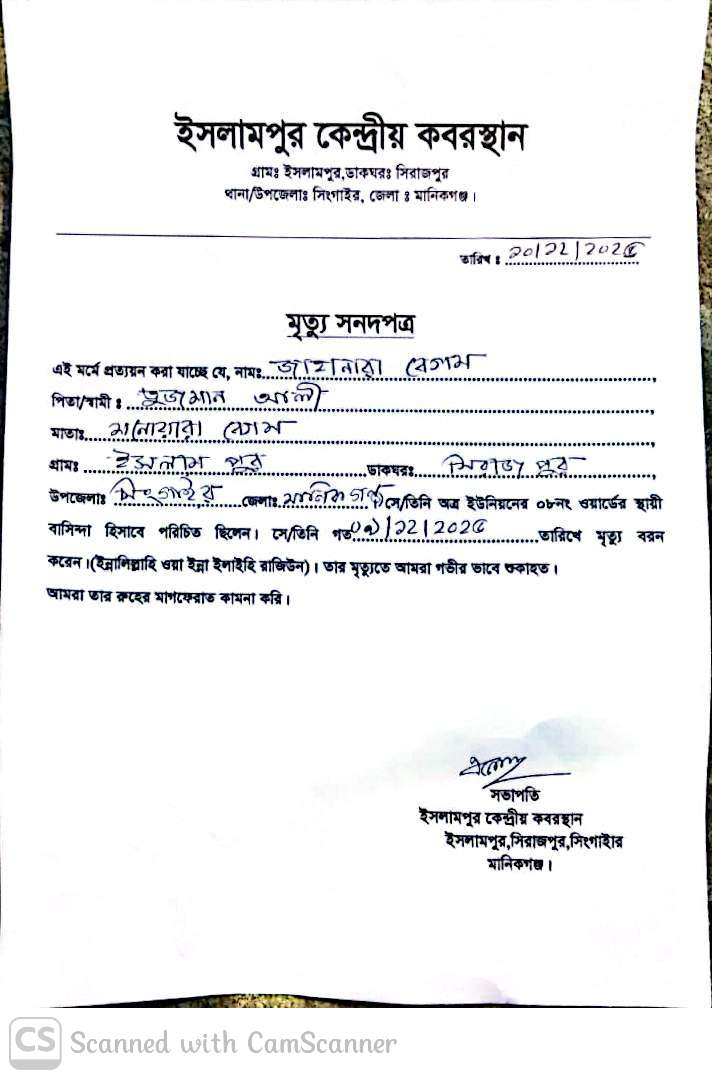 ইসলামপুর কেন্দ্রীয় কবরস্থান
গ্রামঃ ইসলামপুর,ডাকঘরঃ সিরাজপুর
থানা/উপজেলাঃ সিংগাইর, জেলা ঃ মানিকগঞ্জ।
তারিখ ঃ ২০/১২/২০২৫
মৃত্যু সনদপত্র
এই মর্মে প্রত্যয়ন করা যাচ্ছে যে, নামঃ জাহানারা বেগম,
পিতা/স্বামী ঃ আলী,
মাতাঃ মনোয়ারা বেগম,
গ্রামঃ ইসলাম পুর ডাকঘরঃ সিরাজ পুর
উপজেলাঃ সিংগাইর জেলাঃ মানিকগঞ্জ সে/তিনি অত্র ইউনিয়নের ০৮নং ওয়ার্ডের স্থায়ী
বাসিন্দা হিসাবে পরিচিত ছিলেন। সে/তিনি গত /১২/২০২৫ তারিখে মৃত্যু বরন
করেন।(ইন্নালিল্লাহি ওয়া ইন্না ইলাইহি রাজিউন)। তার মৃত্যুতে আমরা গভীর ভাবে শুকাহত।
আমরা তার রুহের মাগফেরাত কামনা করি।
সভাপতি
ইসলামপুর কেন্দ্রীয় কবরস্থান
ইসলামপুর,সিরাজপুর,সিংগাইর
মানিকগঞ্জ।
CS Scanned with CamScanner